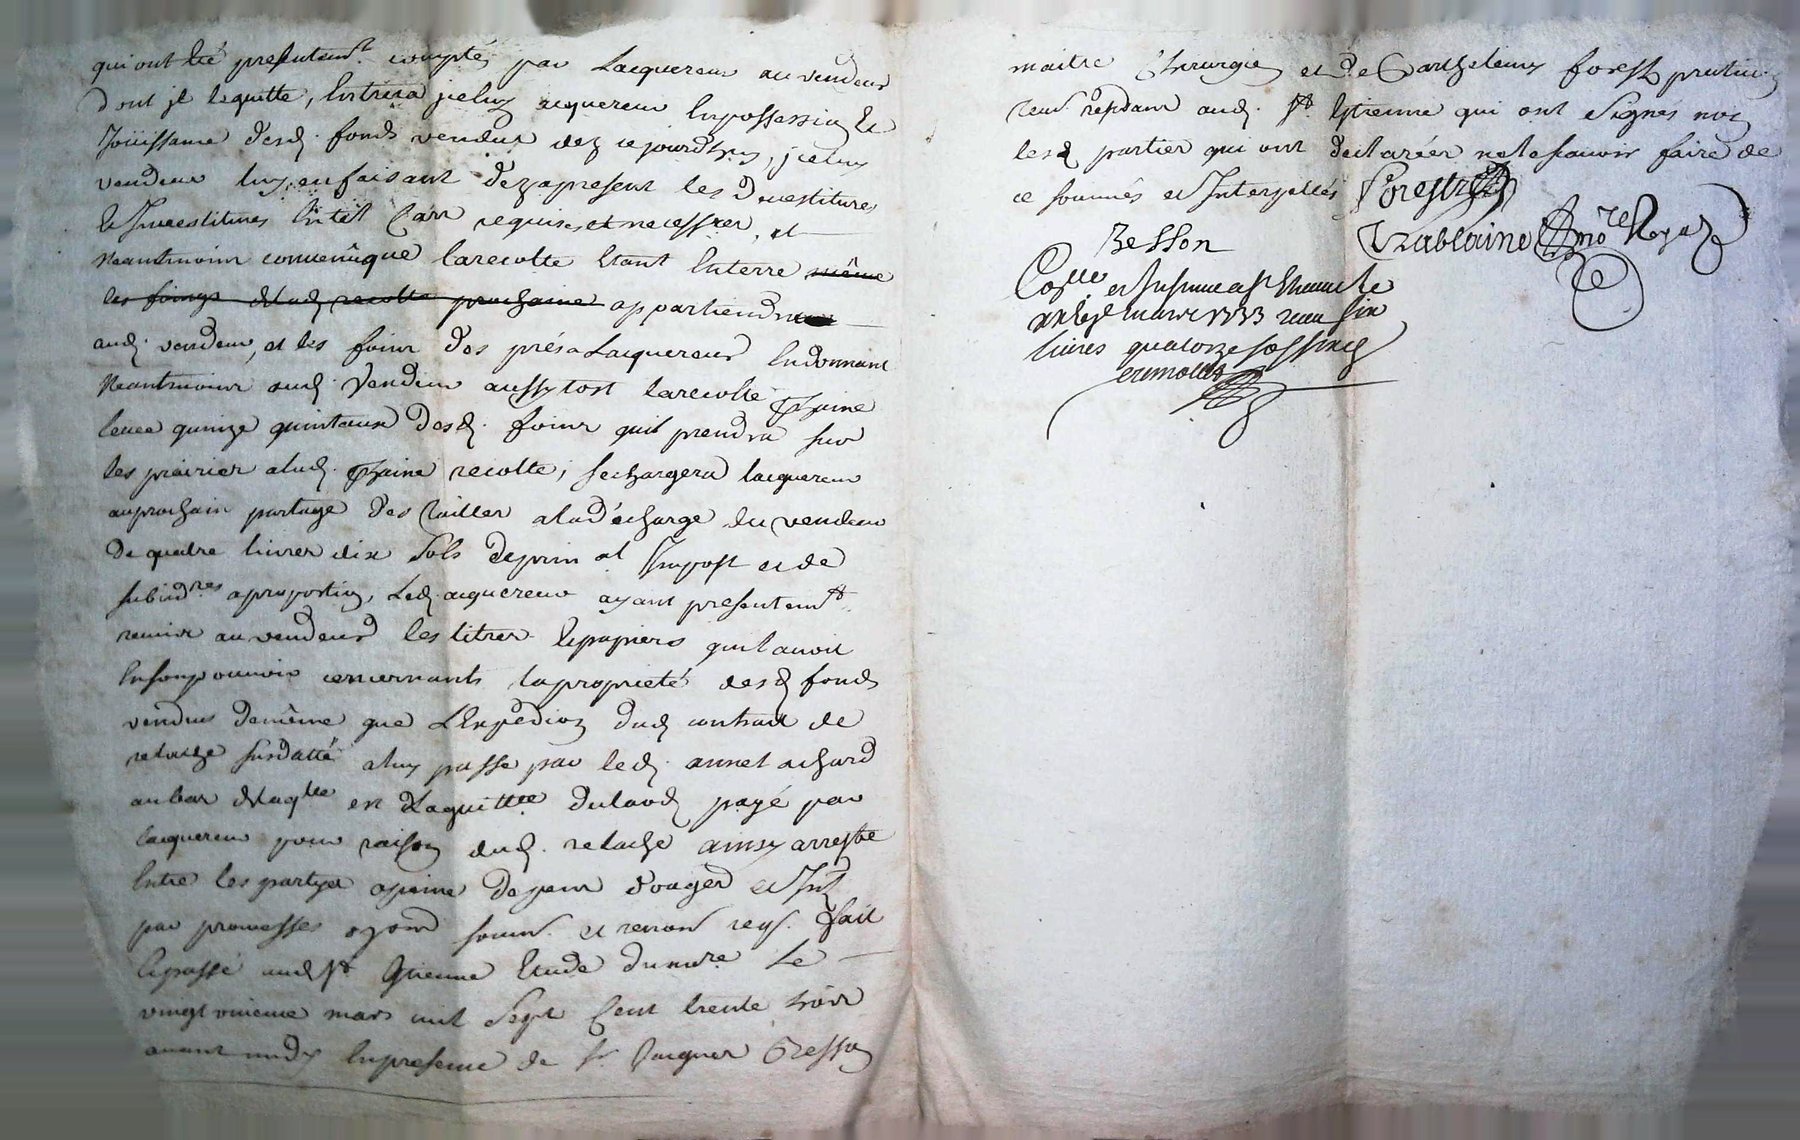 qui ont été presentem.t comptés par Lacquereur au vendeur
dont jl lequitte, Entrera jceluy acquereur Enpossession Et
Joüissance desd. fonds vendus dez cejourdhuy, jceluy
vendeur luy en faisant dezapresent les Devestitures
Et Investitures En tel Cas requises et necessres, et
Neantmoins convenû que larecolte Etant Enterre même
les foings de lad. recolte prochaine appartiendra
aud. vendeur, et les foins des prés a Lacquereur Endonnant
Neantmoins aud. Vendeur aussytost larecolte pchaine
levée quinze quintaux desd. foins quil prendra sur
les prairies alad. pchaine recolte, sechargera lacquereur
auprochain partage des tailles aladécharge du vendeur
de quatre livres dix sols deprin.al Impost et de
subsid.res aproportion, Led. acquereur ayant presentem.t
remis au vendeur les titres Et papiers quil avoit
Ensonpouvoir concernants lapropriété desd. fonds
vendus demême que LExpedion dud. contract de
relache susdatté aluy passé par led. annet achard
aubas de laqlle est laquittce dulaod payé par
lacquereur pour raison dud. relache ainsy arresté
Entre les partyes apeine de tous depens
par promesses soum. et renon. reqs. fait
Et passé aud St Etienne Etude du no.re Le
vingt unieme mars mil Sept Cent trente trois
avant midy Enpresence de Sr. Jacques Besson
maitre Chirurgien et de Barthelemy forest praticien
tous residant aud. St. Etienne qui ont Signés non
lesd. parties qui ont declarées ne le scavoir faire de
ce sommés et Interpellés Forest
Besson Tablaine No.re Royal
Co.llé et Insinué a St Etienne le
mars 1733 reçu six
livres quatorze sols six d